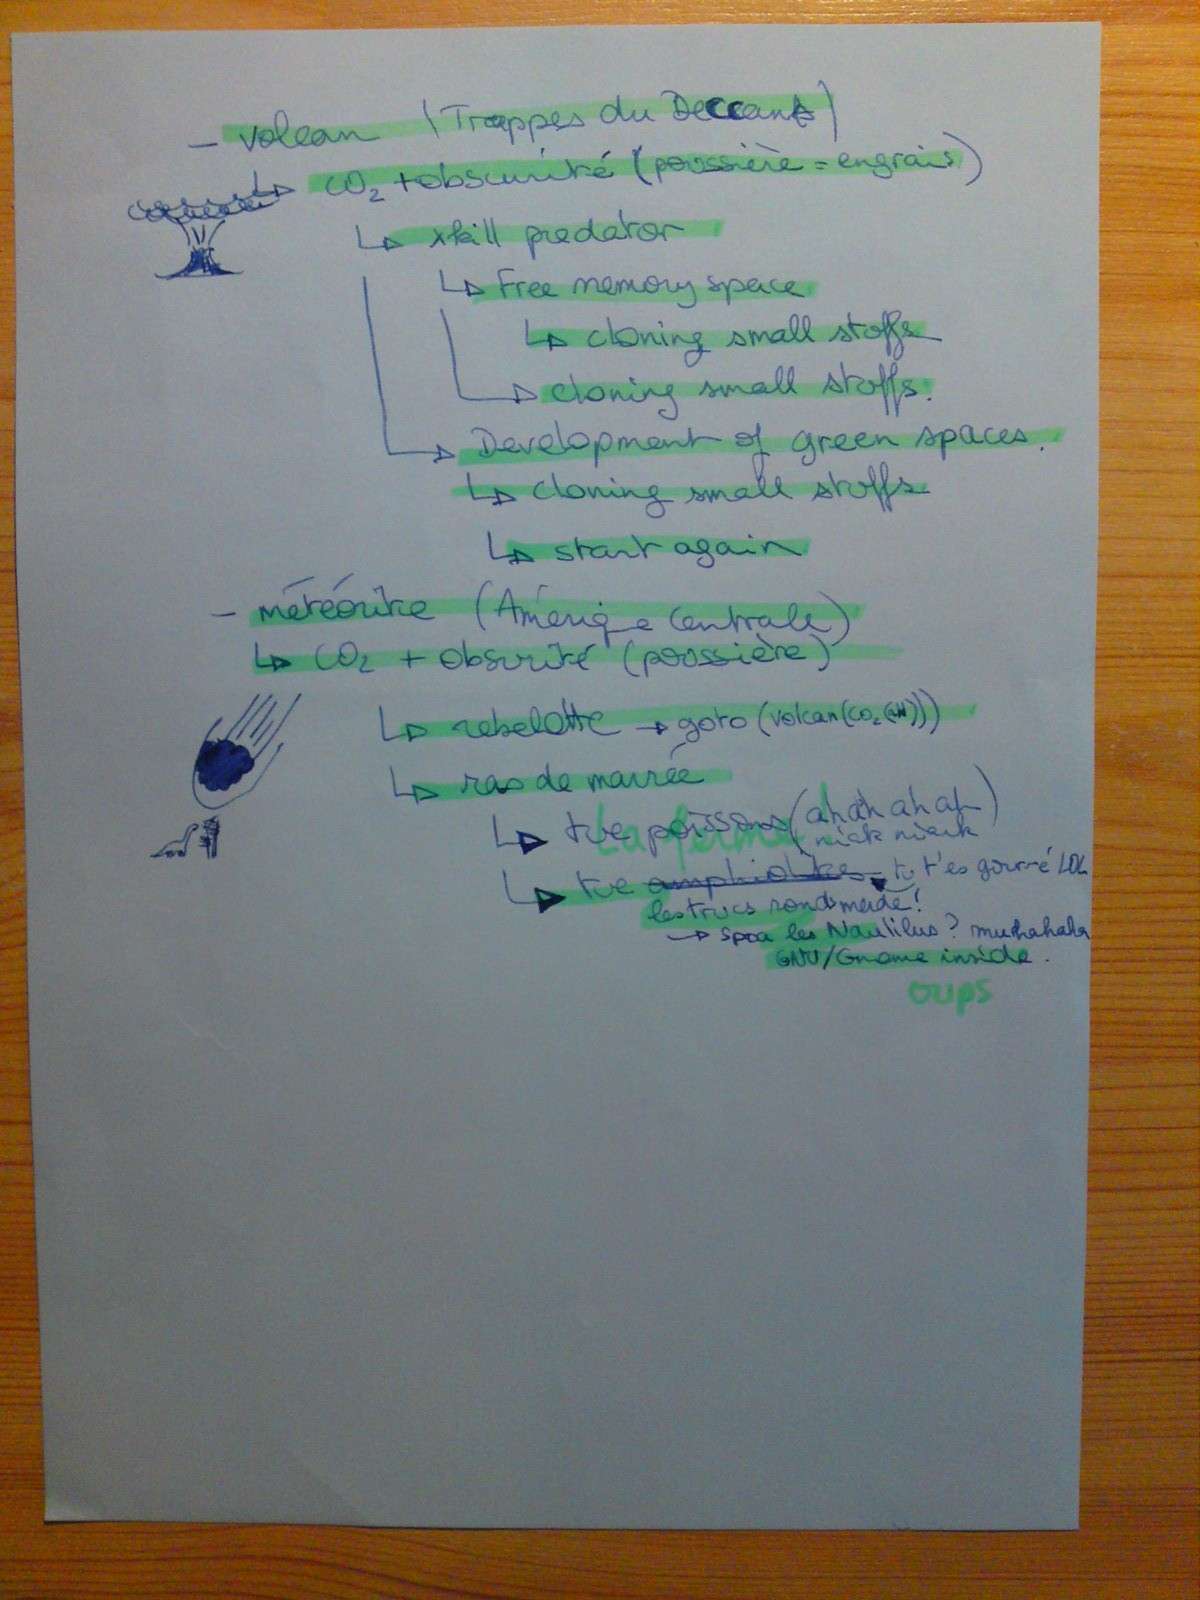 - volcan (Trappes du Deccant)
↳ CO2 + obscurité (poussière = engrais)
↳ xkill predator
↳ Free memory space
↳ cloning small stoffs
↳ cloning small stoffs.
↳ Development of green spaces.
↳ cloning small stoffs
↳ start again
- météorite (Amérique Centrale)
↳ CO2 + obsurité (poussière)
↳ rebelotte → goto (volcan(CO2()))
↳ ras de marrée
↳ tue poissons (ahahahah)
niak niark
La ferme
↳ tue amphiolites tu t'es gourré LOL
les trucs ronds merde!
→ spa les Nautilus? muhahaha
GNU/Gnome inside.
oups